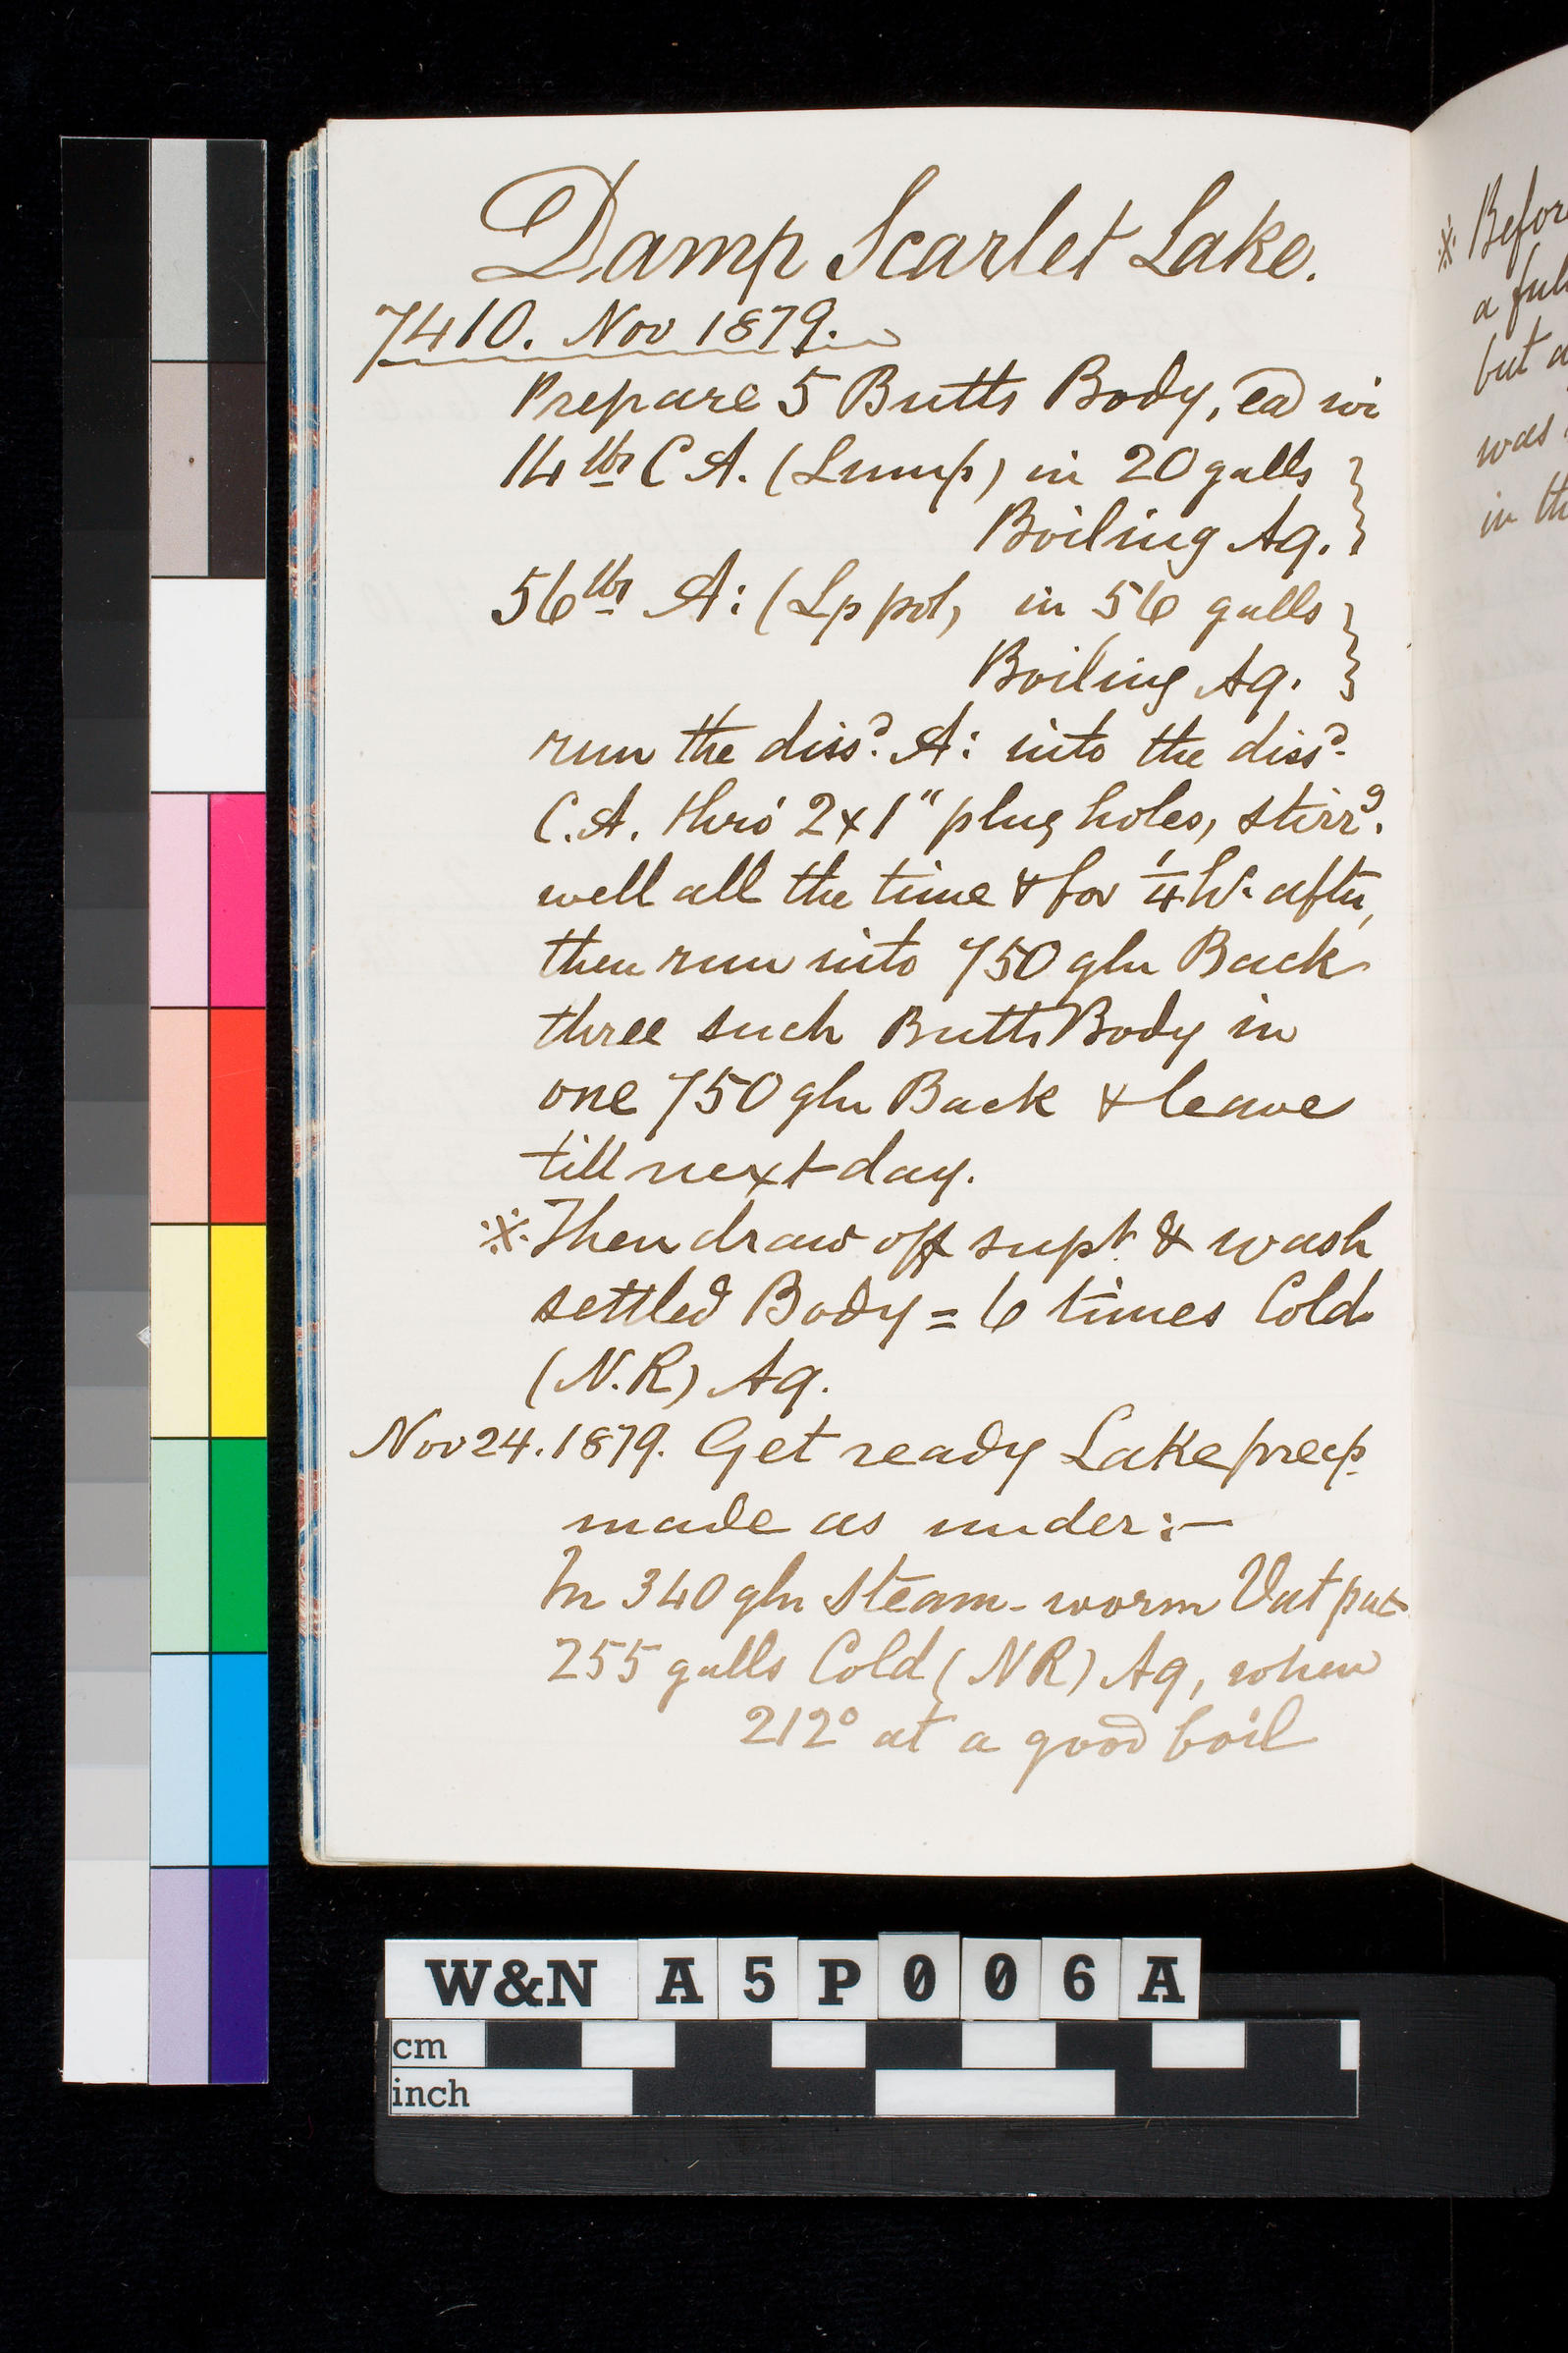 Damp Scarlet Lake.
7410. Nov 1879.
Prepare 5 Butts Body, ea wi
14 lbs C A. (Lump) in 20 galls
Boiling Aq.
56 lbs A: (Lp pot, in 56 galls
Boiling Aq.
run the dissd. A: into the dissd.
C.A. thro' 2 x 1" plug holes, stirrg.
well all the time & for 1/4 hr. after,
then run into 750 gln Back
three such Butts Body in
one 750 gln Back & leave
till next day.
※ Then draw off supt. & wash
settled Body = 6 times Cold
(N.R) Aq.
Nov 24. 1879. Get ready Lake precp.
made as under:—
In 340 gln Steam-worm Vat put
255 galls Cold (NR) Aq, when
212° at a good boil
※ Befor
a ful
but a
was
in th
W&N A5P006A
cm
inch